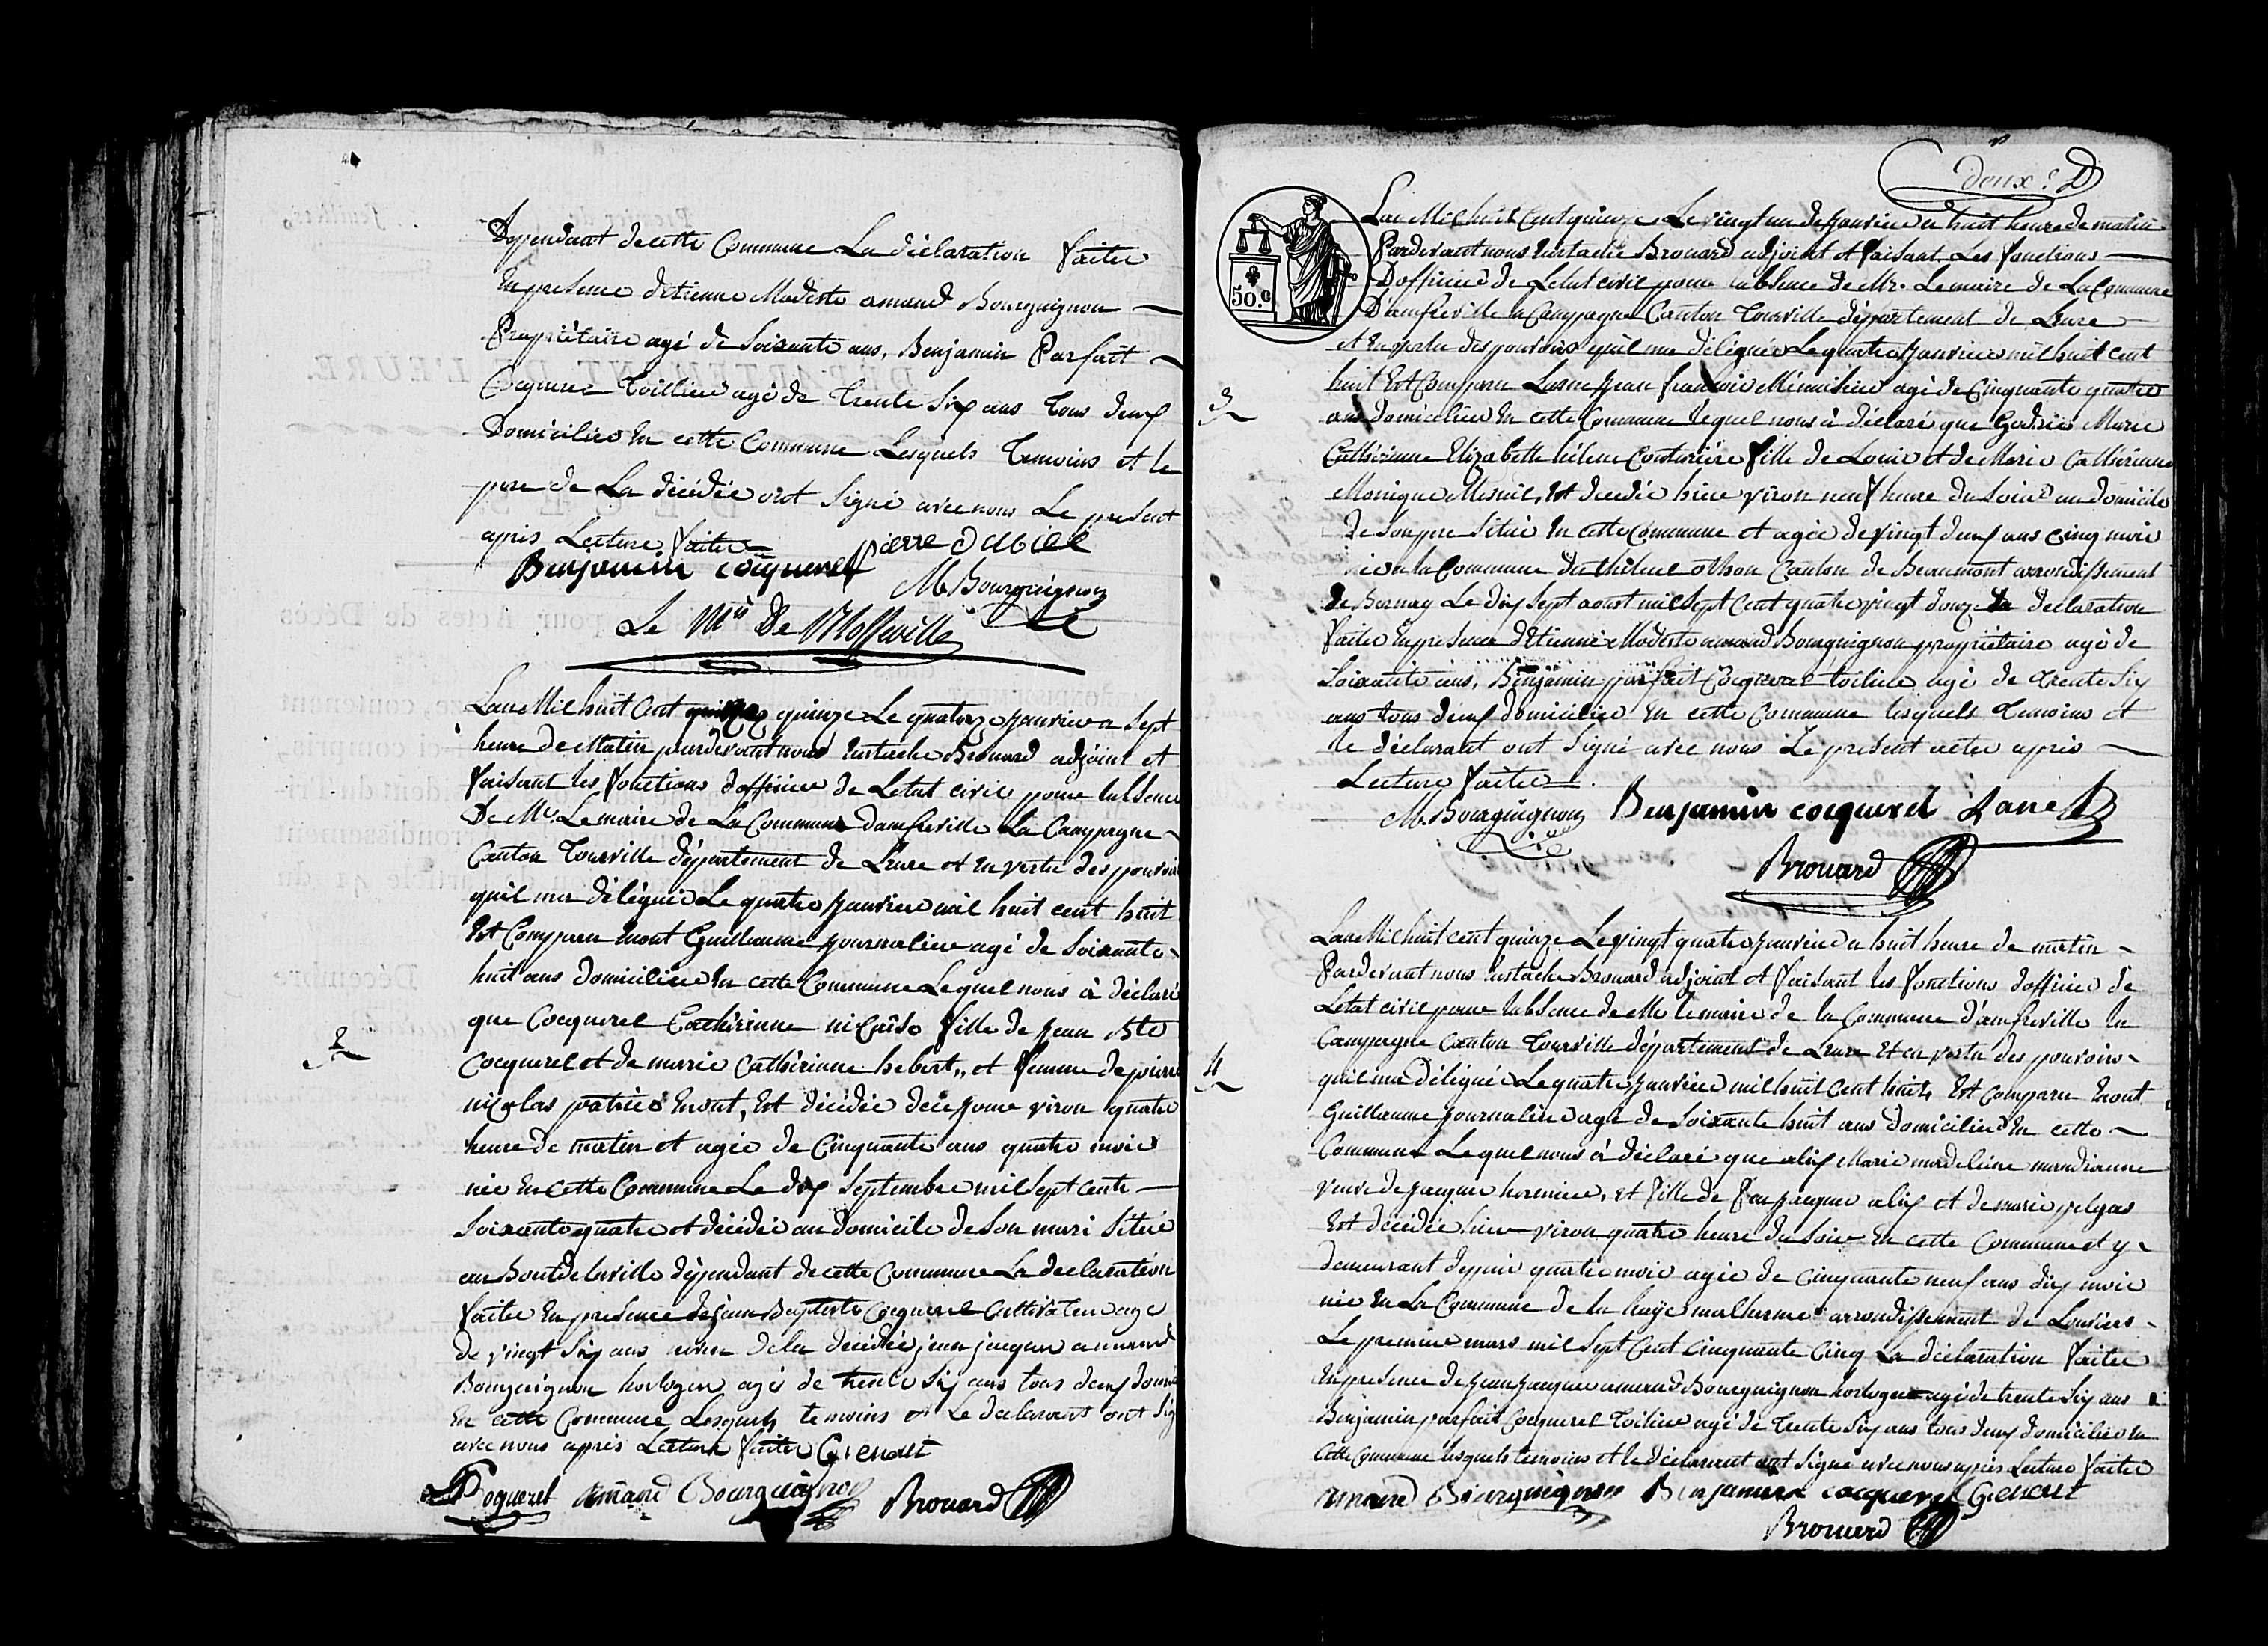 Dependant de cette Commune La déclaration faitte
En presence detienne Modeste amand Bourguignon
Propriétaire agé de Soixante ans, Benjamin Parfait
Cocquerel toillier agé de trente Six ans tous deux
Domiciliés En cette Commune Lesquels temoins et le
pere de La décédée ont Signé avec nous Le present
après Lecture faitte
Benjamin cocquerel
M Bourguignon
Le Mis De
Lan Mil huit Cent quinze Le quatorze Janvier a Sept
heure de Matin pardevant nous Eustache Brouard adjoint et
faisant les fonctions dofficier de Letat civil pour labsence
De Mr Le maire de La Commune damfreville La Campagne
Canton Tourville département de Leure et En vertu des pouvoirs
quil ma délégué Le quatre Janvier mil huit cent huit
Est Comparu Guillaume journalier agé de Soixante
huit ans domicilié En cette Commune Lequel nous à déclaré
que Cocquerel Cathérinne nicaise fille de Jean Bte
Cocquerel et de marie Cathérinne hebert, et femme de pierre
nicolas patrice Enout, Est décédée dece jour viron quatre
heure de matin et agée de Cinquante ans quatre mois
née En cette Commune Le dix Septembre mil Sept cente
Soixante quatre et décédée au domicile de Son mari Situé
au Bout de laville dépendant de cette Commune La declaration
faitte En presence de jean Baptiste Cocquerel Cultivateur age
de vingt Six ans de la décédée, jean jacques amand
Bourguignon horloger agé de trente Six ans tous deux
En cette Commune Lesquels temoins et Le declarant ont
avec nous après Lecture faitte
2
Cocquerel amand Bourguignon Brouard
deux
50.c
Lan Mil huit Cent quinze Le vingt un de Janvier a huit heure de matin
Pardevant nous Eustache Brouard adjoint et faisant Les fonctions
Dofficier de Letat civil pour labsence de Mr. Le maire de La Commune
Damfreville la Campagne Canton Tourville département de Leure
et En vertu des pouvoirs quil ma délégué Le quatre Janvier mil huit cent
huit Est Comparu Jean françois agé de Cinquante quatre
ans Domicilié En cette Commune Lequel nous à déclaré que Marie
Cathérinne Elizabette hélene Couturière fille de Louis et de Marie Cathérinne
Monique Est decedée hier viron neuf heure du Soir au domicile
de Son pere Situé En cette Commune et agée de vingt deux ans cinq mois
née a la Commune du thilleul othon Canton de Beaumont arrondissement
de Bernay Le dix Sept aoust mil Sept Cent quatre vingt douze La declaration
faitte En presence dEtienne Modeste amand Bourguignon propriétaire agé de
Soixante ans, Benjamin parfait Cocquerel toilier agé de trente Six
ans tous deux domicilié En cette Commune lesquels temoins et
le déclarant ont Signé avec nous Le present acte après
Lecture faitte
3
M. Bourguignon Benjamin cocquerel
Brouard
Lan Mil huit cent quinze Le vingt quatre Janvier a huit heure de matin
Pardevant nous Eustache Brouard adjoint et faisant les fonctions dofficier de
Letat civil pour labsence de Mr le maire de la Commune d'amfreville La
Campagne Canton Tourville département de Leure Et en vertu des pouvoirs
quil ma délégué Le quatre Janvier mil huit Cent huit, Est Comparu Enout
Guillaume journalier agé de Soixante huit ans domicilié En cette
Commune Lequel nous à déclaré que alix Marie madeleine mandianne
veuve de Jacques et fille de feu Jacques alix et de marie
Est décédée hier viron quatre heure du Soir En cette Commune et y
demeurant depuis quatre mois agée de cinquante neuf ans dix mois
née En La Commune de la haye malherme arrondissement de Louviers
Le premier mars mil Sept Cent Cinquante Cinq La déclaration faitte
En presence de Jean Jacques amand Bourguignon horloger agé de trente Six ans
Benjamin parfait Cocquerel toilier agé de trente Six ans tous deux domiciliés En
Cette Commune lesquels temoins et le déclarant ont Signé avec nous après Lecture faitte
4
amand Bourguignon Benjamin cocquerel
Brouard